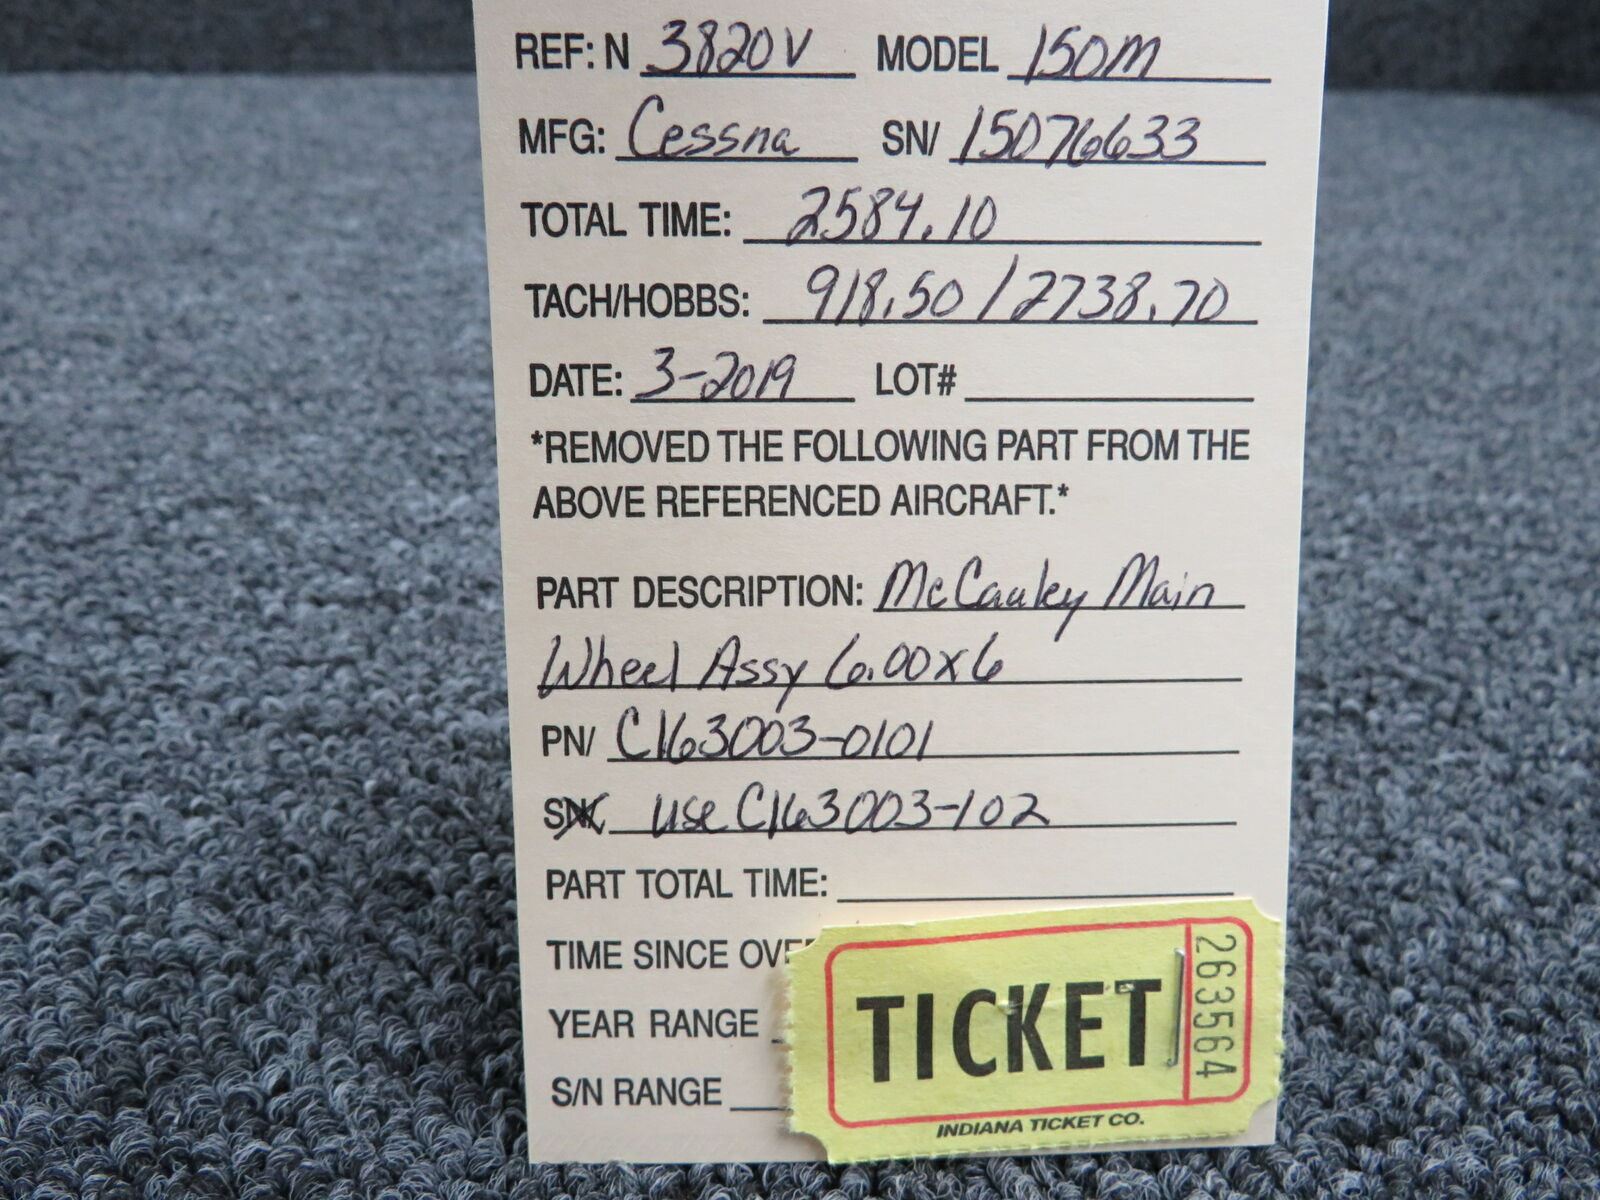 REF: N 3820V MODEL 150M
MFG: Cessna SN/ 15076633
TOTAL TIME: 2584.10
TACH/HOBBS: 918.50 / 2738.70
DATE: 3-2019 LOT#
*REMOVED THE FOLLOWING PART FROM THE
ABOVE REFERENCED AIRCRAFT.*
PART DESCRIPTION: McCauley Main
Wheel Assy 6.00x6
PN/ C163003-0101
SN/ use C163003-102
PART TOTAL TIME:
TIME SINCE
YEAR RANGE
S/N RANGE
TICKET
263564
INDIANA TICKET CO.